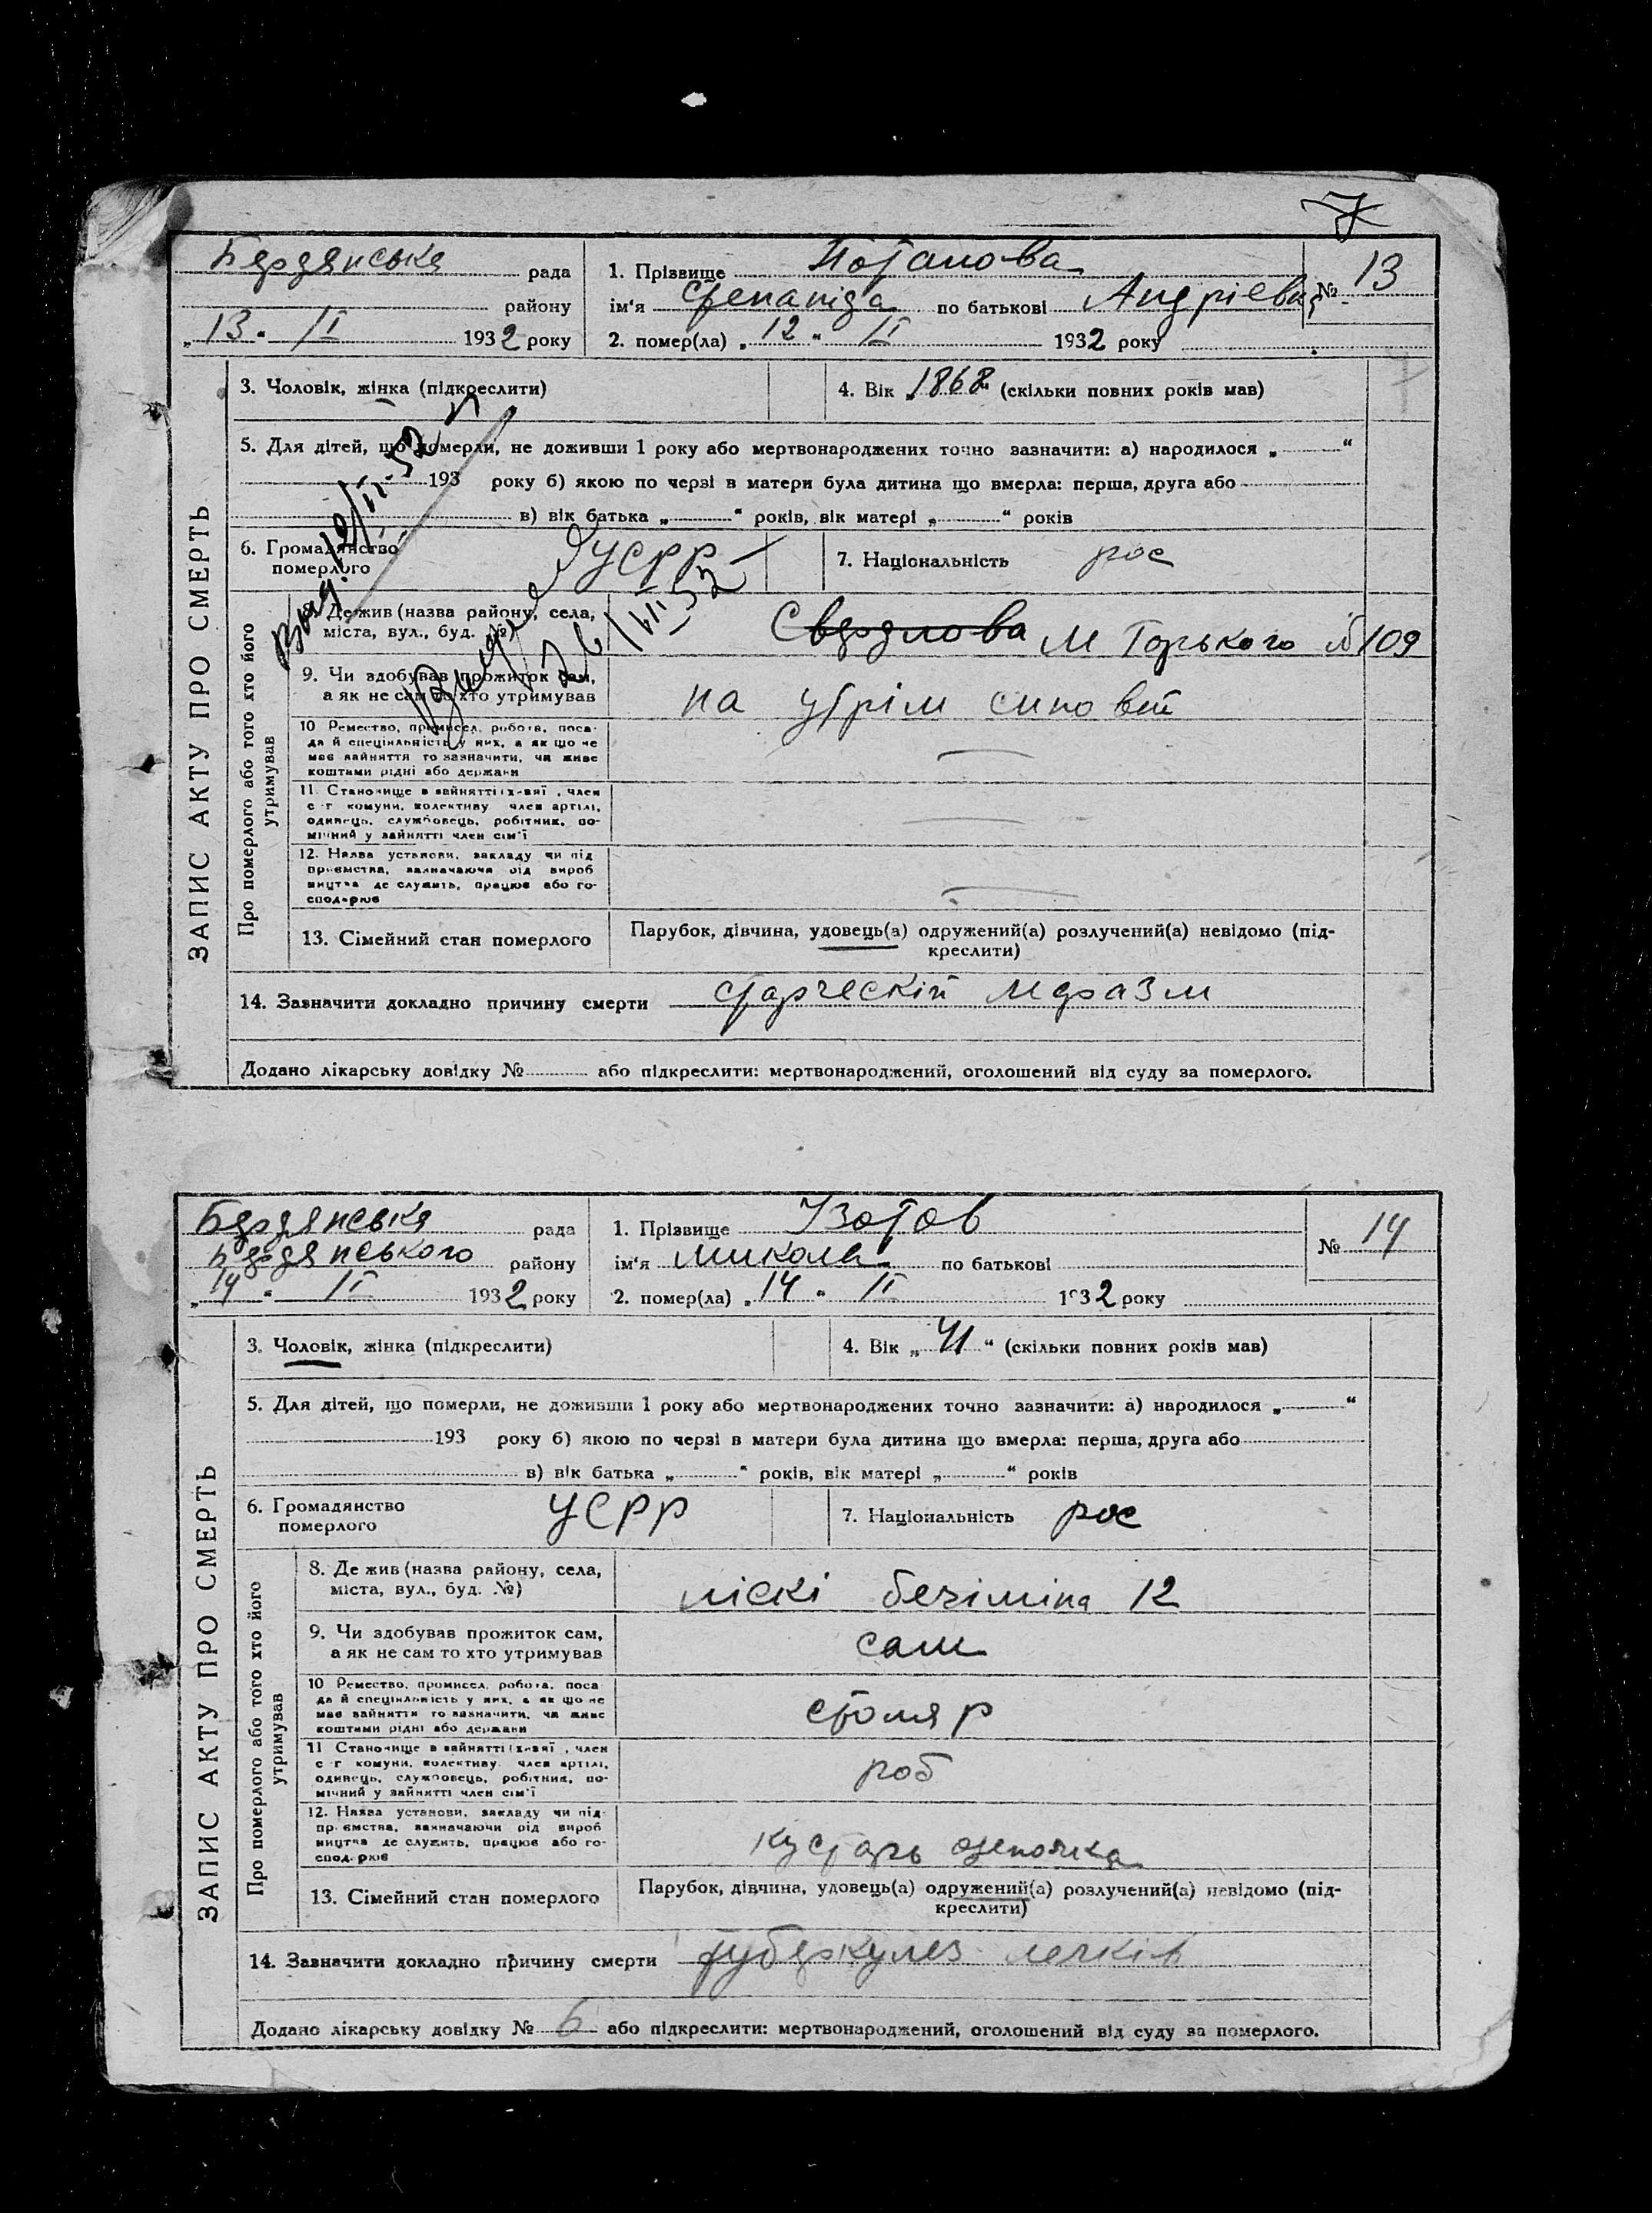 7
Бердянська рада
району
„13“ II 1932 року
1. Прізвище Потапова
ім'я Степаніда по батькові Андріевна
2. помер(ла) „12“ II 1932 року
№ 13
ЗАПИС АКТУ ПРО СМЕРТЬ
3. Чоловік, жінка (підкреслити)
4. Вік „1868“ (скільки повних років мав)
5. Для дітей, що померли, не доживши 1 року або мертвонароджених точно зазначити: а) народилося „ “
193 року б) якою по черзі в матери була дитина що вмерла: перша, друга або
в) вік батька „ “ років, вік матері „ “ років
6. Громадянство
померлого
УСРР
7. Національність рос
Про померлого або того хто його
утримував
8. Де жив (назва району, села,
міста, вул., буд. №)
Свердлова М Горького № 109
9. Чи здобував прожиток сам,
а як не сам то хто утримував
на утрім синовей
10 Ремество, промисел, робота, поса-
да й спеціяльність у них, а як що не
має зайняття то зазначити, чи живе
коштами рідні або держави
11. Становище в зайнятті, член
с-г комуни, колективу член артілі,
одинець, службовець, робітник, по-
мічний у зайнятті член сім'ї
12. Назва установи, закладу чи під
приємства, зазначаючи рід вироб
ництва де служить, працює або го-
сподарює
13. Сімейний стан померлого
Парубок, дівчина, удовець(а) одружений(а) розлучений(а) невідомо (під-
креслити)
14. Зазначити докладно причину смерти старческій маразм
Додано лікарську довідку № або підкреслити: мертвонароджений, оголошений від суду за померлого.
Бердянська рада
Бердянського району
„14“ II 1932 року
1. Прізвище Ізотов
ім'я Микола по батькові
2. помер(ла) „14“ II 1932 року
№ 14
ЗАПИС АКТУ ПРО СМЕРТЬ
3. Чоловік, жінка (підкреслити)
4. Вік „41“ (скільки повних років мав)
5. Для дітей, що померли, не доживши 1 року або мертвонароджених точно зазначити: а) народилося „ “
193 року б) якою по черзі в матери була дитина що вмерла: перша, друга або
в) вік батька „ “ років, вік матері „ “ років
6. Громадянство
померлого
УСРР
7. Національність рос
Про померлого або того хто його
утримував
8. Де жив (назва району, села,
міста, вул., буд. №)
ліскі безіміна 12
9. Чи здобував прожиток сам,
а як не сам то хто утримував
сам
10 Ремество, промисел, робота, поса
да й спеціяльність у них, а як що не
має зайняття то зазначити, чи живе
коштами рідні або держави
столяр
11 Становище в зайнятті, член
с-г комуни, колективу член артілі,
одинець, службовець, робітник, по-
мічний у зайнятті член сім'ї
роб
12. Назва установи, закладу чи під-
приємства, зазначаючи рід вироб
ництва де служить, працює або го-
сподарює
кустарь
13. Сімейний стан померлого
Парубок, дівчина, удовець(а) одружений(а) розлучений(а) невідомо (під-
креслити)
14. Зазначити докладно причину смерти туберкулез легків
Додано лікарську довідку № 6 або підкреслити: мертвонароджений, оголошений від суду за померлого.